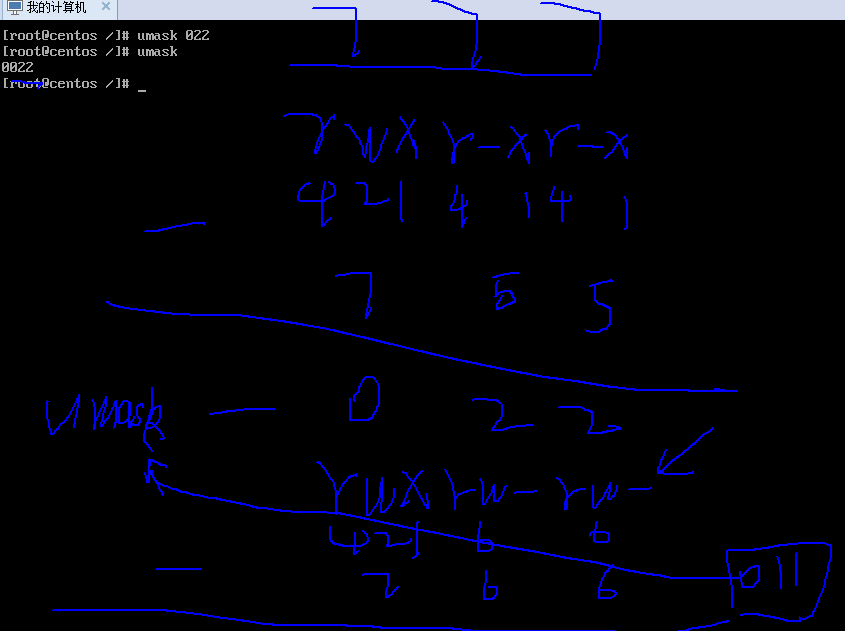 我的计算机
[root@centos /]# umask 022
[root@centos /]# umask
0022
[root@centos /]# _
rwx r-x r-x
421 4 1 4 1
7 5 5
umask 0 2 2
rwx rw- rw-
421 6 6
7 6 6
011